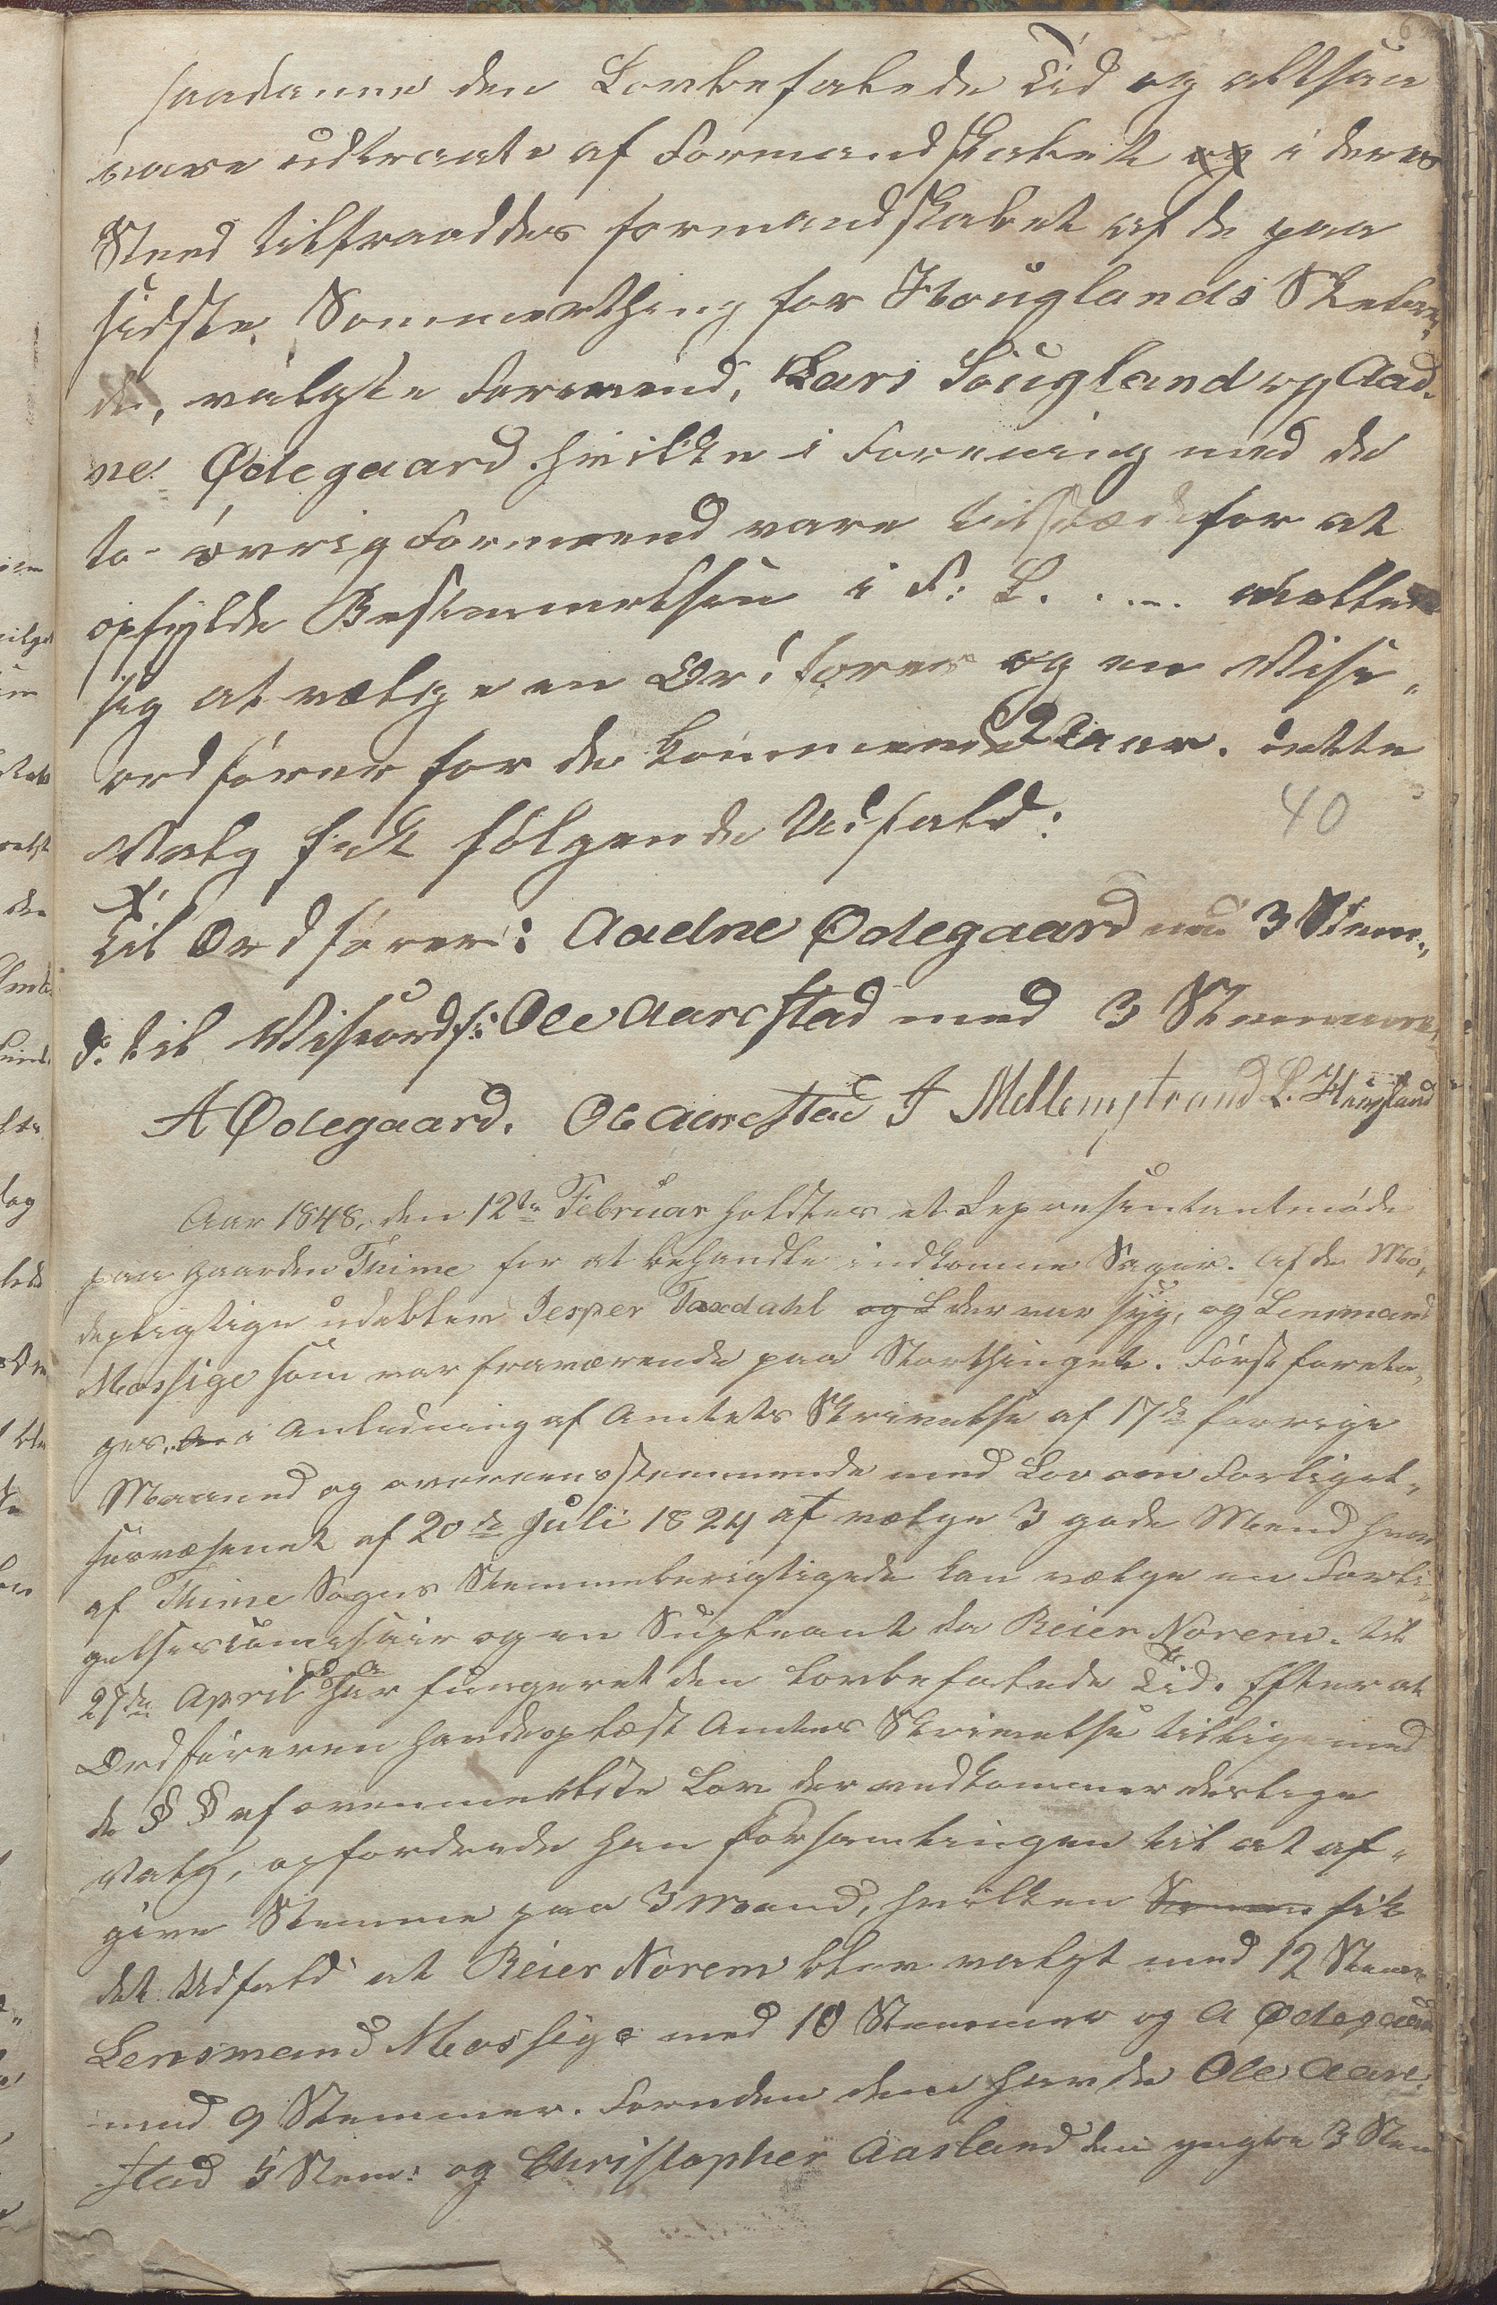 saadanne den Lovbefalede Tid og altsaa
vare udtraate af Formandskabet og i deres
Sted tiltraaddes formandskabet af de paa
sidste Sommerthing for Houglands Skibre,,
de, valgte Formænd, Lars Haugland og Aad,,
ne Ødegaard hvilke i Forening med de
to øvrig Formænd vare tilstæde for at
opfylde Bestemmelsen i F: L. . . — mellem
sig at vælge en Ordfører og en Vise,,
ordfører for de kommende 2 Aar. dette
Valg fik følgende Udfald:
40
Til Ordfører: Aadne Ødegaard med 3 Stem,,
d: til Viseordf: Ole Aarestad med 3 Stemmer,
A Ødegaard. Ole Aarestad J Mellemstrand L. Haugland
Aar 1848, den 12te Februar holdtes et Repræsentantmøde
paa Gaarden Thime for at behandle indkomne Sager. Af de Mø,
depligtige udeblev Jesper Taxdahl og L der var syg, og Lensmand
Mossige som var fraværende paa Storthinget. Først foreto,
ges, i Anledning af Amtets Skrivelse af 17de forrige
Maaned og overeensstemmende med Lov om Forligel,,
sesvæsenet af 20de Juli 1824 at vælge 3 gode Mænd hvor
af Thime Sogns Stemmeberigtigede kan vælge en Forli,
gelsescomisair og en Supleant da Reier Norem til
27de April d. a. har fungeret den lovbefalede Tid. Efter at
Ordføreren havde oplæst Amtets Skrivelse tilligemed
de §§ af ovenmeldte Lov der vedkommer deslige
Valg, opfordrede han Forsamlingen til at af,,
give Stemme paa 3 Mænd, hvilken fik
det Udfald at Reier Norem blev valgt med 12 Stem
Lensmand Mossige med 10 Stemmer og A Ødegaard
med 9 Stemmer. Foruden dem havde Ole Aare,
stad 5 Stem: og Christopher Aasland den yngre 3 Stem